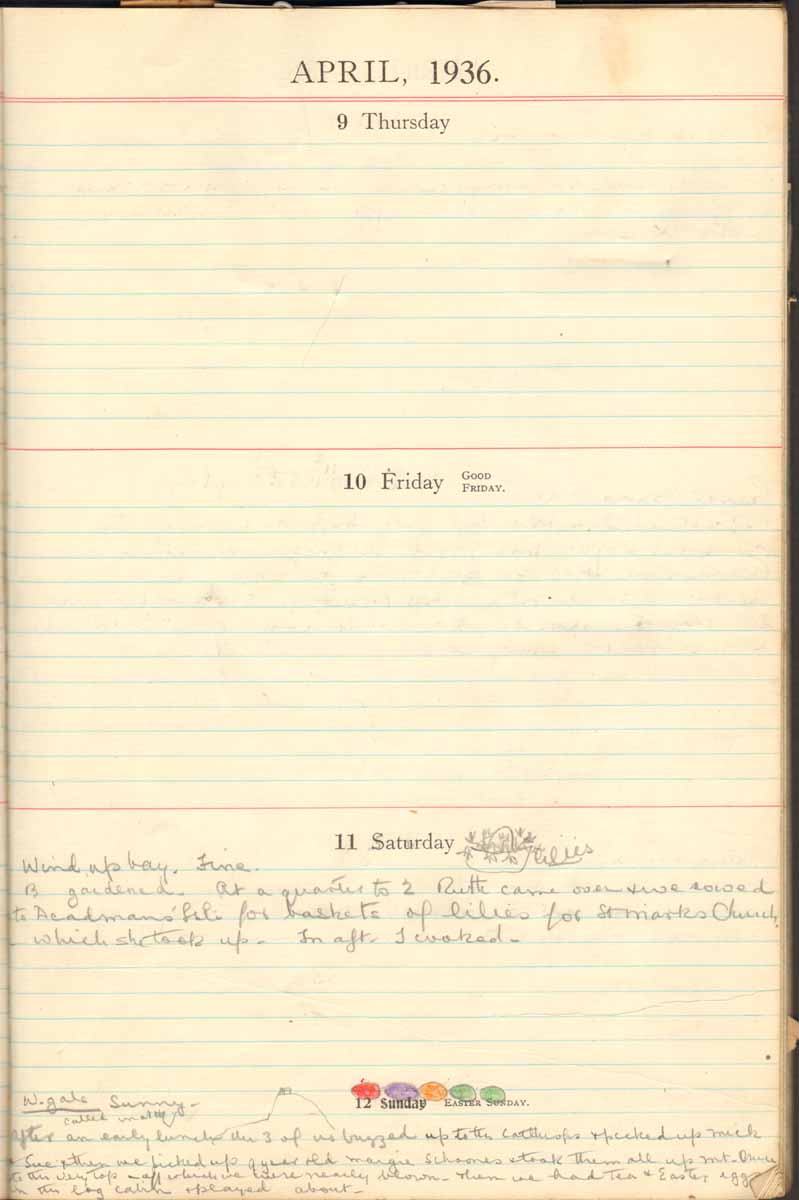 APRIL, 1936.
9 Thursday
10 Friday GOOD FRIDAY.
11 Saturday lilies
Wind up bay. Fine.
B gardened. At a quarter to 2 Ruth came over & we rowed
to for baskets of lilies for St Marks Church
- which she took up - In aft - I cooked -
12 Sunday EASTER SUNDAY.
W. gale Sunny -
called
After an early lunch the 3 of us buzzed up to the & picked up Mick
& Sue & then we picked up 9 year old Margie & took them all up Mt.
to the very top - off which we were nearly blown - then we had tea & Easter eggs
in the log cabin & played about -